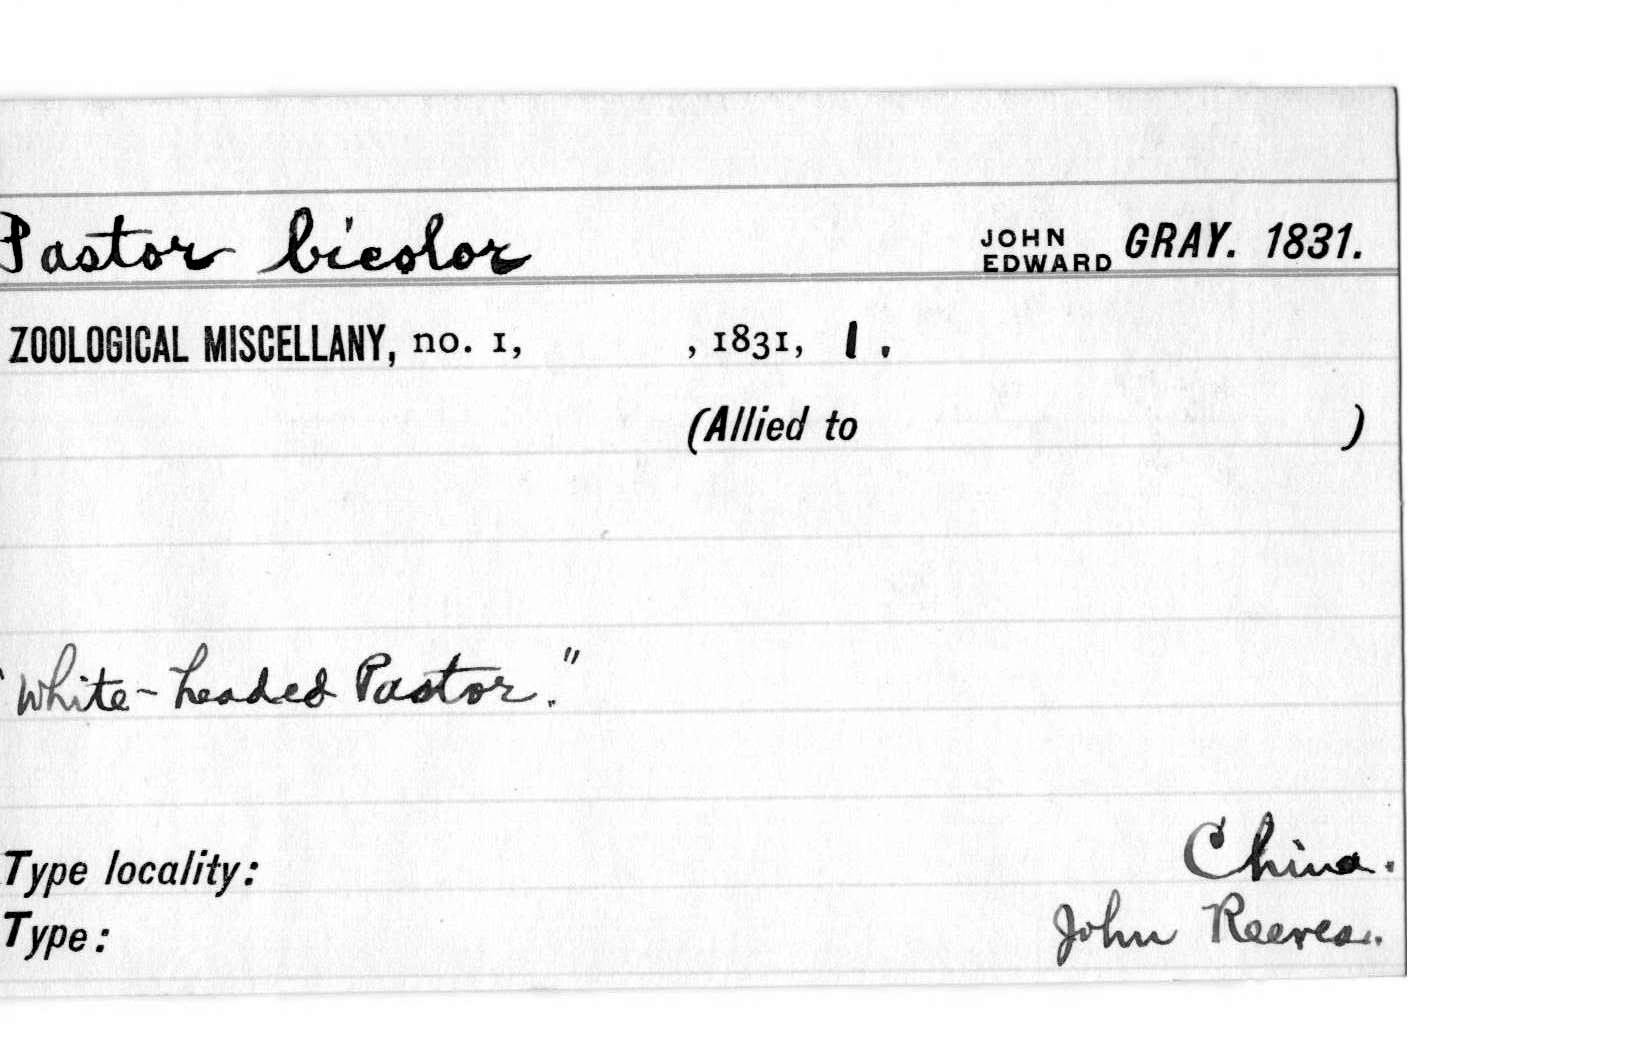 Pastor bicolor JOHN EDWARD GRAY. 1831.
ZOOLOGICAL MISCELLANY, no. 1, , 1831, 1.
(Allied to )
"White-headed Pastor."
Type locality: China.
Type: John Reeves.